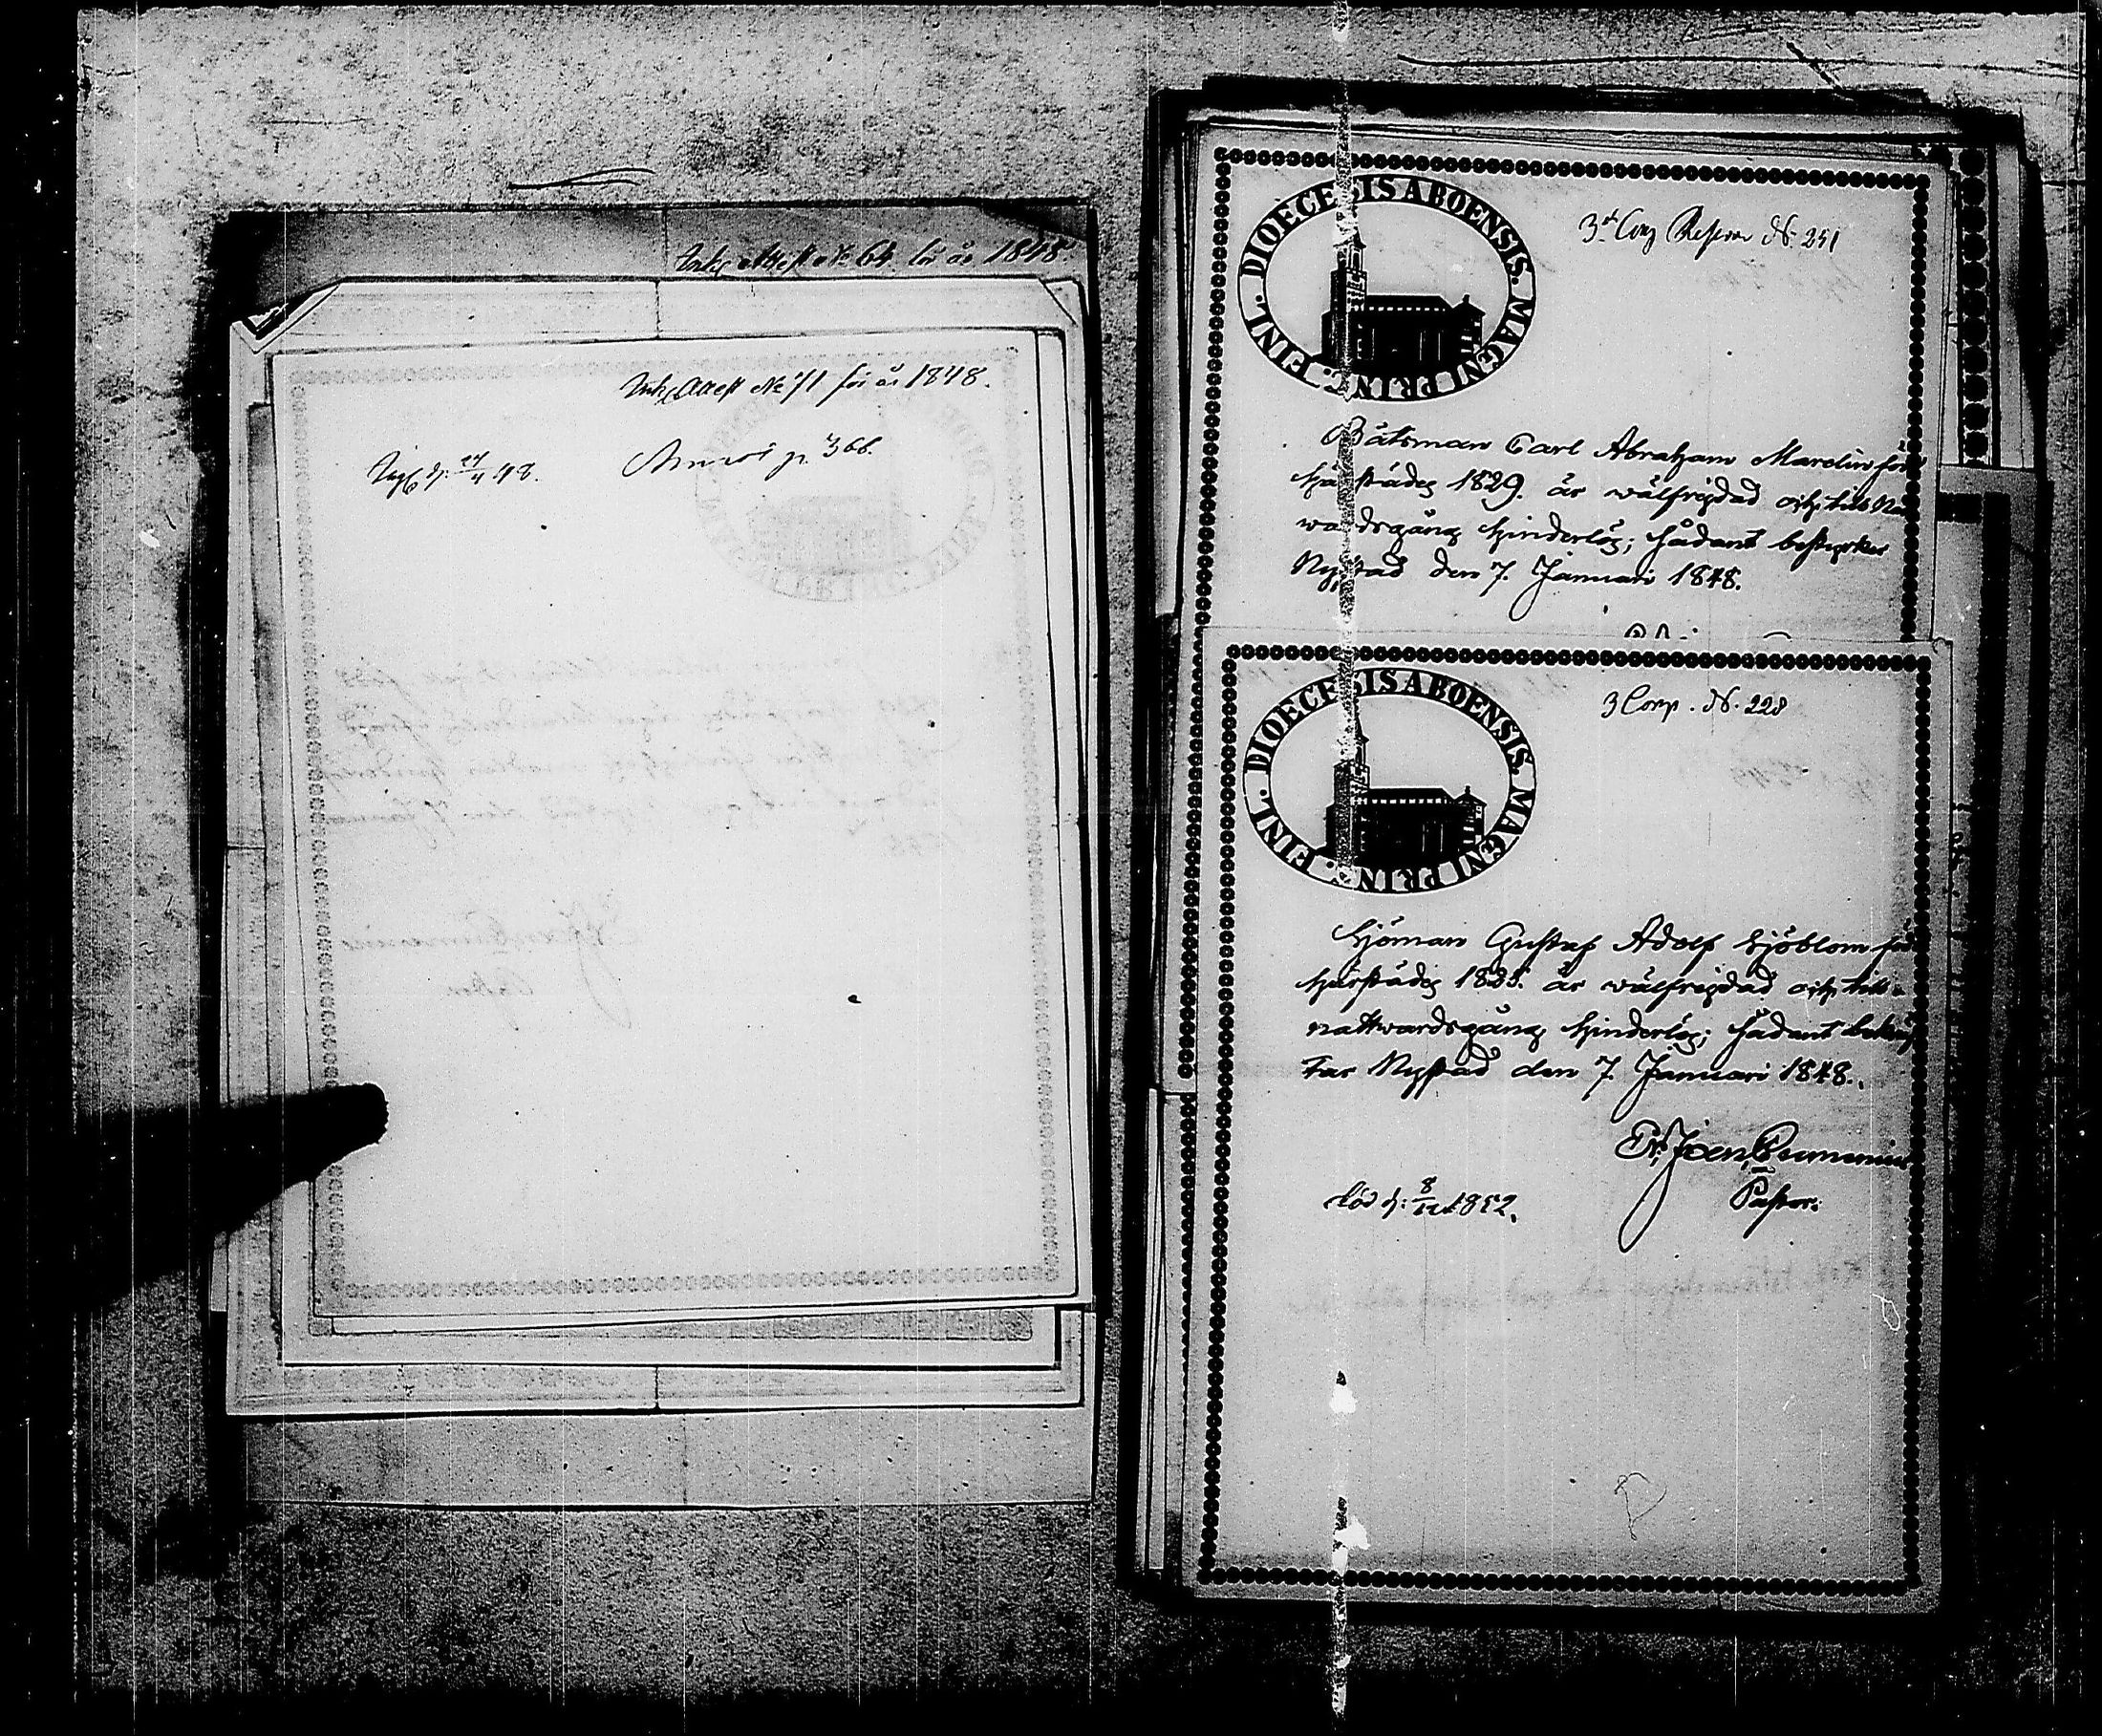 Ink. Attest No 64 för år 1848.
Ink. Attest No 71 för år 1848.
d: 24/4 48.
p. 366.
DIOECESIS ABOENSIS. MAGNI PRINC. FINL.
3 Comp No 251
Båtsman Carl Abraham Marelin född
härstädes 1829. är wälfrejdad och till Na
wardsgång hinderlös; sådant bestyrkes
Nystad den 7. Januari 1848.
DIOECESIS ABOENSIS. MAGNI PRINC. FINL.
3 Comp. No. 228
Sjöman Gustaf Adolf Sjöblom född
härstädes 1825. är wälfrejdad och till
nattwardsgång hinderlös; sådant bekräf
tar Nystad den 7. Januari 1848.
Pastor.
död d: 8/12 1852.